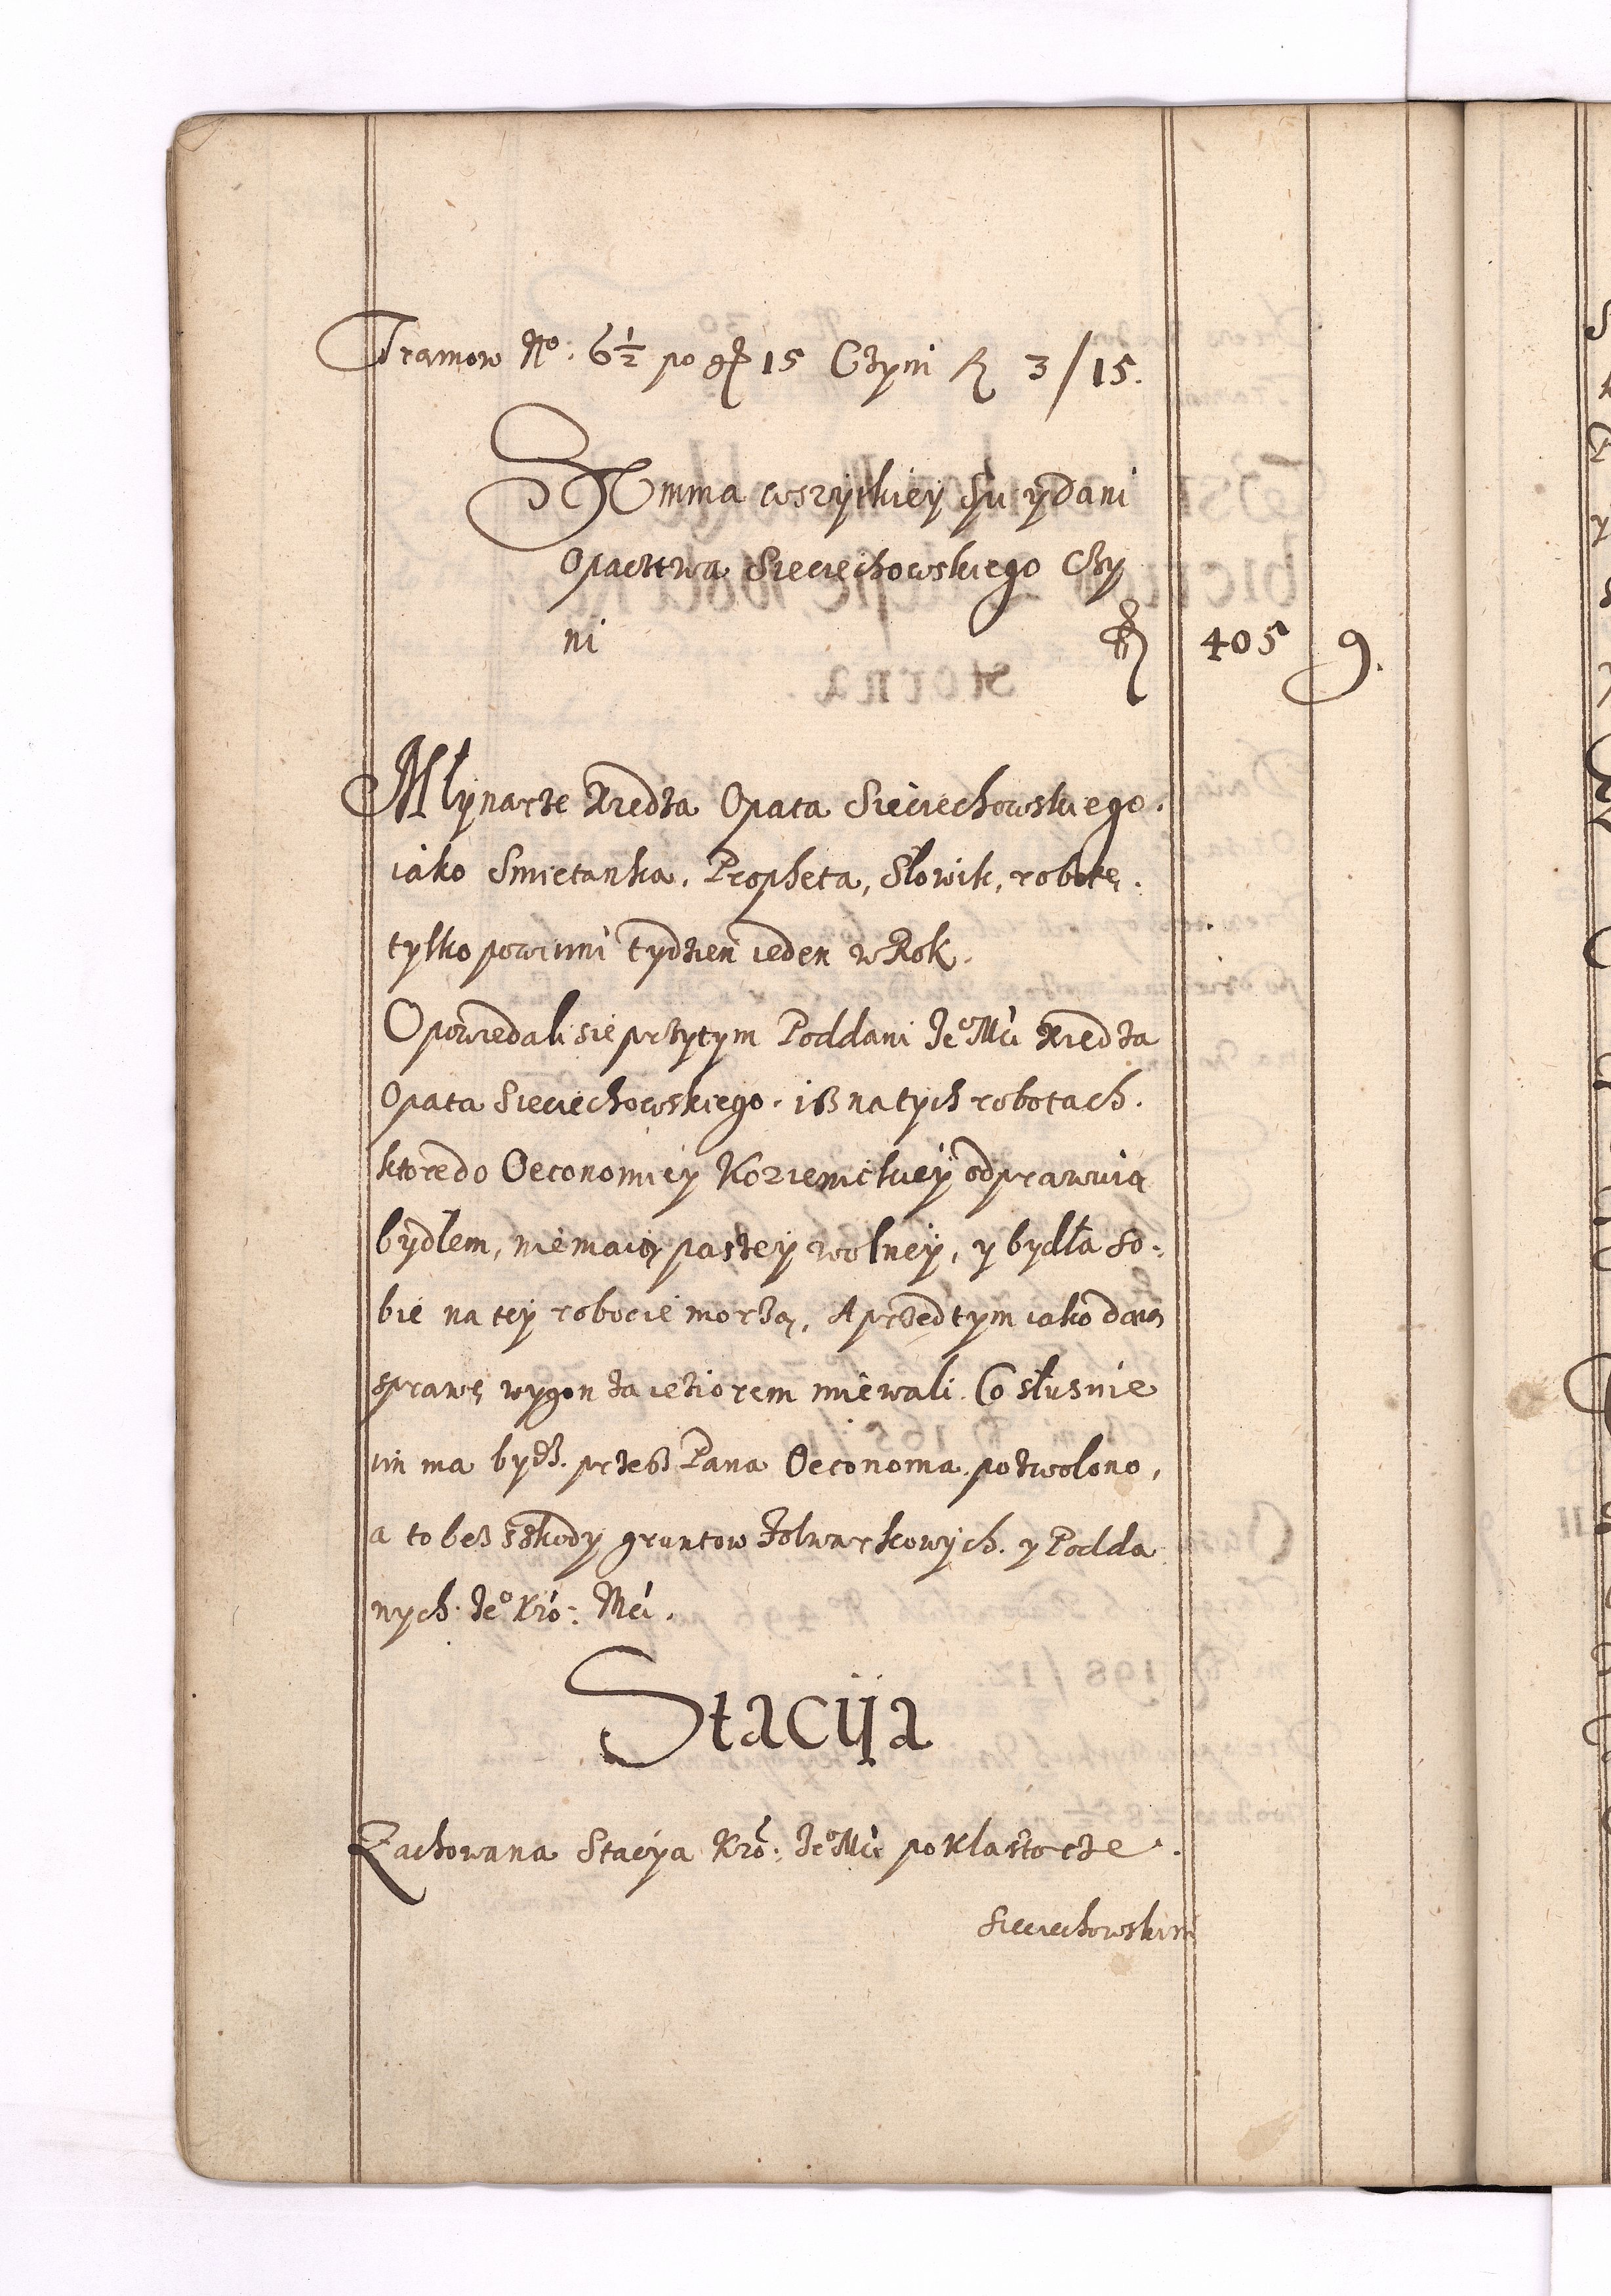 Tramow No. 6½ po gr 15 Czyni fl 3/15.
Summa wszytkiey su ydani
Opactwa Sieciechowskiego Czy
ni fl 405 9.
Młynarze Xiedza Opata Sieciechowskiego.
iako Smietanka, Propheta, Słowik, robotę.
tylko powinni tydzien ieden w Rok.
Opowiedali sie przytym Poddani Jeº Mći Xiedza
Opata Sieciechowskiego. iß na tych robotach.
ktore do Oeconomiey Kozienickiey odprawuią
bydłem, niemaią paszey wolney, y bydła so:
bie na tey robocie morzą, A przedtym iako daią
sprawę wygon za ieziorem miewali. Co słusnie
im ma bydź. przeß Pana Oeconoma pozwolono,
a to beß sskody gruntow folwarkowych. y Podda
nych. Jeº Kró: Mći.
Stacija
Zachowana Stacya Kró: Jeº Mći po Klasztorze.
Sieciechowskim